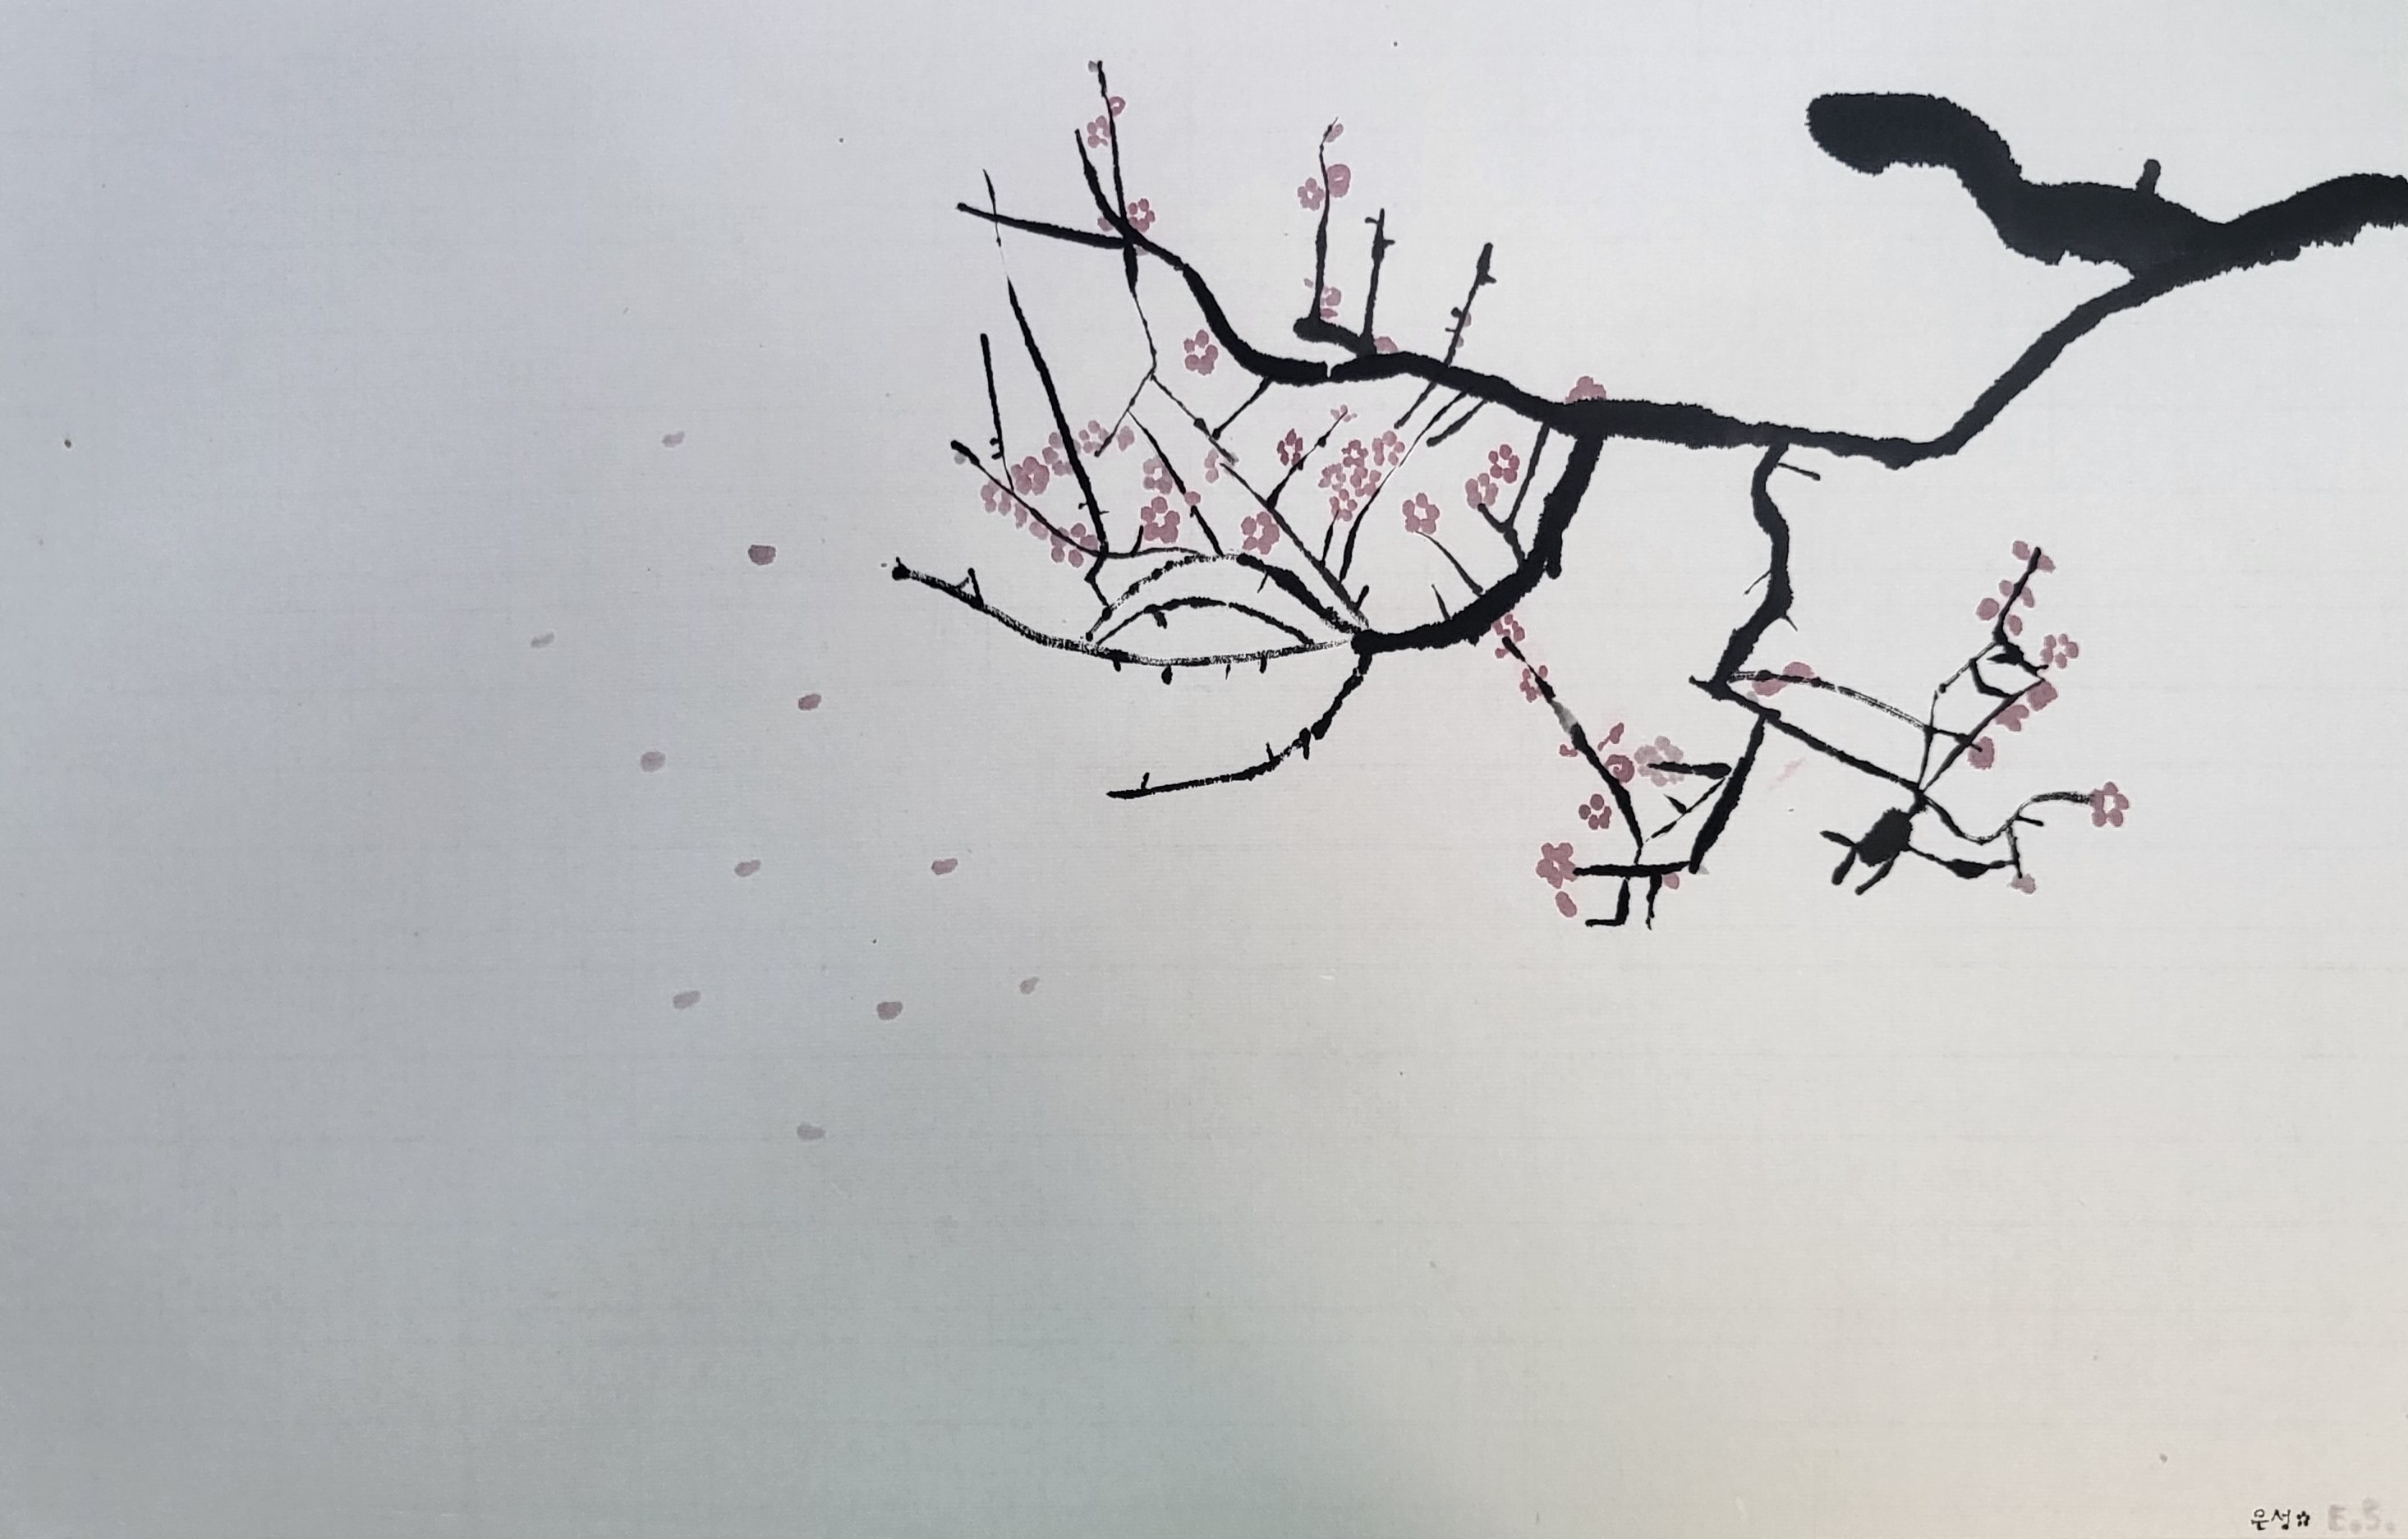 은성✿ E.S.